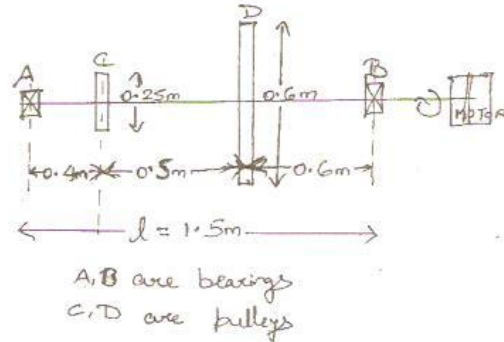 D
C
A
B
0.25m
0.6m
MOTOR
0.4m
0.5m
0.6m
l = 1.5m
A,B are bearings
C,D are pulleys